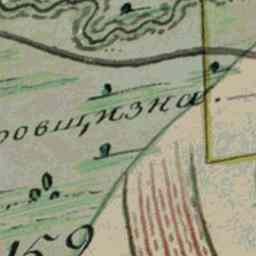 ровщизна
159